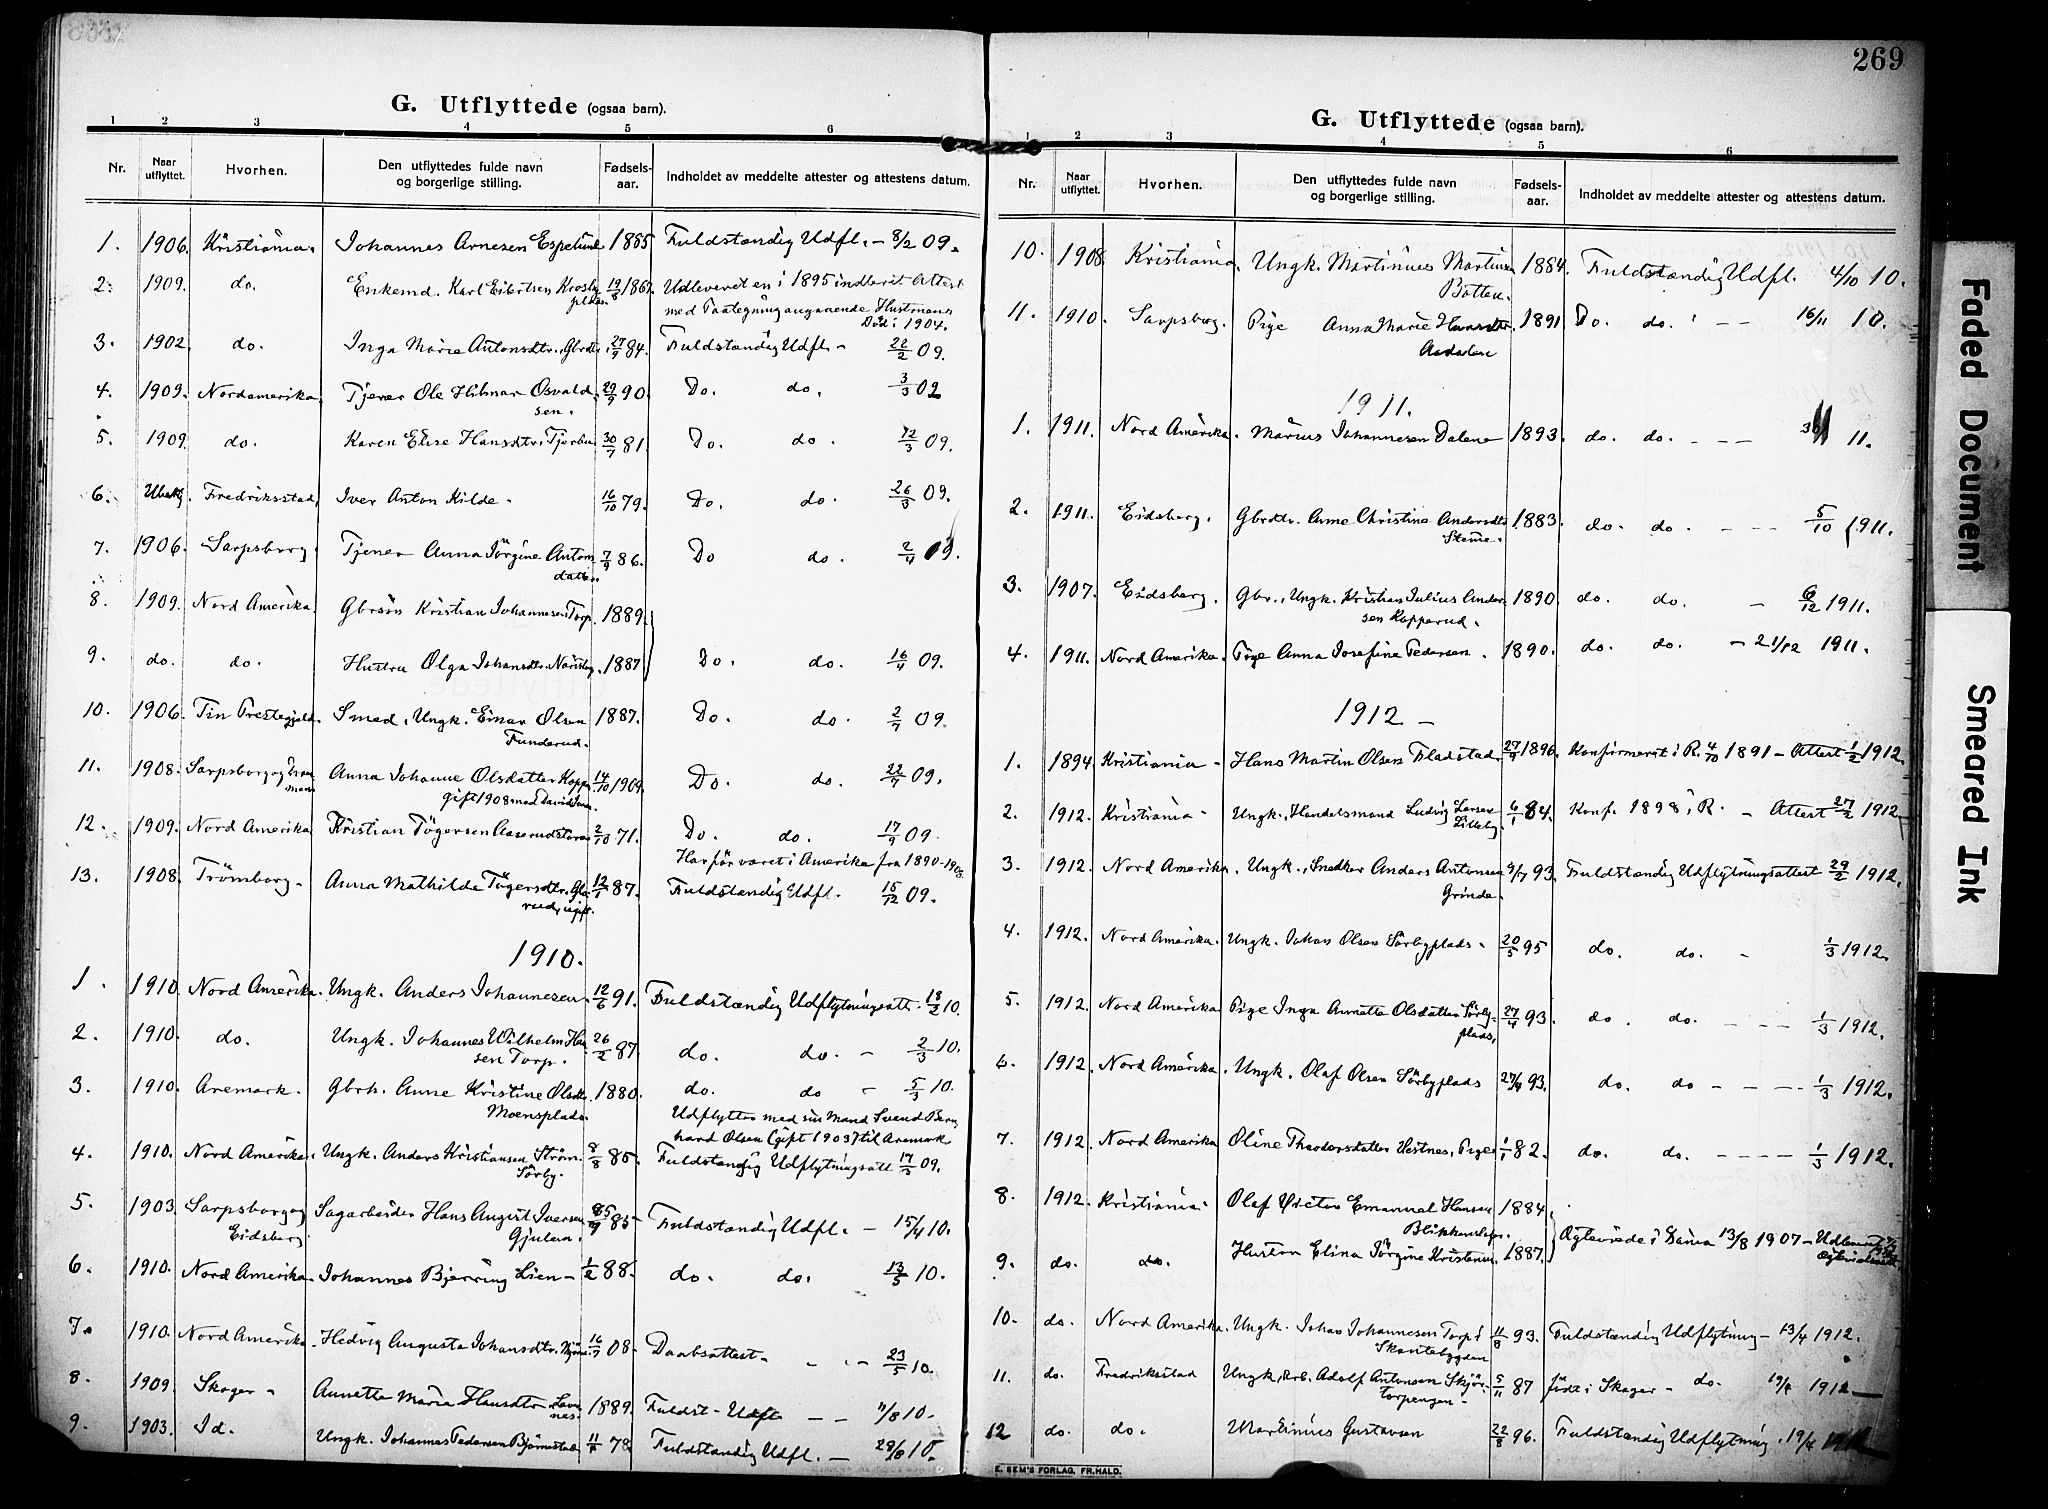 269
G. Utflyttede (ogsaa barn).
1 2 3 4 5 6
Nr. Naar utflyttet. Hvorhen. Den utflyttedes fulde navn og borgerlige stilling. Fødselsaar. Indholdet av meddelte attester og attestens datum.
1. 1906. Kristiania. Johannes Arnesen Espelund 1865 Fuldstændig Udfl. - 8/2 09.
2. 1909. do. Enkemd. Karl Eilertsen Krosby 19/8 1867. Udleveret en i 1895 indleveret Attest
plads. med Paategning angaaende Hustruens
Död i 1904.
3. 1902. do. Inga Marie Antonsdtr. Gbrdtr. 27/9 84. Fuldstændig Udfl. - 22/2 09.
4. 1909. Nordamerika. Tjener Ole Hilmar Osvald- 29/9 90. Do. do. 3/3 09
sen.
5. 1909. do. Karen Elise Hansdtr. 30/7 81. Do. do. 12/3 09.
6. Fredriksstad, Iver Anton Kilde. 16/10 79. Do. do. 26/3 09.
7. 1906. Sarpsborg. Tjener Anna Jörgine Anton 7/9 86. Do do. 2/4 09.
datter.
8. 1909. Nord Amerika. Gbrsön Kristian Johannesen Torp. 1889.
9. do. do. Hustru Olga Johansdtr. 1887 Do. do. 16/4 09.
10. 1906. Tin Prestegjeld. Smed, Ungk. Einar Olsen 1887. Do. do. 2/7 09.
Funderud.
11. 1908. Sarpsborg og Anna Johanne Olsdatter 14/10 1909. Do. do. 22/7 09.
gift 1908 med David
12. 1909. Nord Amerika Kristian Tögersen 2/10 71. Do. do. 17/9 09.
Har för været i Amerika fra 1890-1908.
13. 1908. Trömborg - Anna Mathilde Tögersdtr. 12/1 87. Fuldstændig Udfl. 15/12 09.
rud, ugift.
1910.
1. 1910. Nord Amerika. Ungk. Anders Johannesen. 12/6 91. Fuldstændig Udflytningsatt. 18/2 10.
2. 1910. do. Ungk. Johannes Wilhelm Han 26/2 87. do. do. - 2/3 10.
sen Torp.
3. 1910. Aremark. Gbrh. Anne Kristine Olsdtr. 1880. do. do - 5/3 10.
Moensplads. Udflytter med sin Mand Svend Bern
hard Olsen (gift 1903) til Aremark
4. 1910. Nord Amerika. Ungk. Anders Kristiansen Ström- 8/8 85. Fuldstændig Udflytningsatt 17/3 09.
Sörby.
5. 1903. Sarpsborg og Sagarbeider Hans August Iversen 85 - Fuldstændig Udfl. - 15/4 10.
Eidsberg Gjulem.
6. 1910. Nord Amerika. Johannes Bjerring Lien - 1/2 88. do. do. 13/5 10.
7. 1910. Nord Amerika. Hedvig Augusta Johansdtr. 16/7 08. Daabsattest. - - - 23/5 10.
8. 1909. Skoger - Annette Maria Hansdtr 1889. Fuldst. Udfl. - - 11/8 10.
nes.
9. 1903. Id. Ungk. Johannes Pedersen Bjørnestad 78. Fuldstændig Udfl. - 29/8 10.
G. Utflyttede (ogsaa barn).
1 2 3 4 5 6
Nr. Naar utflyttet. Hvorhen. Den utflyttedes fulde navn og borgerlige stilling. Fødselsaar. Indholdet av meddelte attester og attestens datum.
10. 1908. Kristiania. Ungk. Martinius Martinsen 1884. Fuldstændig Udfl. 4/10 10.
Botten.
11. 1910. Sarpsborg. Pige Anna Marie 1891 Do. do. - - 16/11 10.
1911.
1. 1911. Nord Amerika. Marius Johannesen Dalene 1893. do. do. - - - 11.
2. 1911. Eidsberg. Gbrdtr. Anne Christine Andersdtr 1883. do. do. - - - 5/10 1911.
3. 1907. Eidsberg. Gbr., Ungk. Kristian Julius Ander- 1890. do. do. - 6/12 1911.
sen Kopperud.
4. 1911. Nord Amerika. Pige Anna Josefine Pedersen. 1890. do. do. - 21/12 1911.
1912 -
1. 1894. Kristiania - Hans Martin Olsen Fladstad. 27/9 1896. Konfirmeret i R. 4/10 1891 - Attest 1/2 1912.
2. 1912. Kristiania - Ungk., Handelsmand Ludvig Larsen 6/1 84. Konf. 1898 i R. - Attest 27/2 1912.
Lilleby.
3. 1912. Nord Amerika. Ungk., Snedker Anders Antonsen 93. Fuldstændig Udflytningsattest 29/2 1912.
Grinde.
4. 1912. Nord Amerika. Ungk. Johan Olsen Sörbyplads - 20/5 95 do. do. - 1/3 1912.
5. 1912. Nord Amerika. Pige Inga Annette Olsdatter Sörby- 27/4 93. do. do. - - - 1/3 1912.
plads,
6. 1912. Nord Amerika. Ungk. Olaf Olsen Sörbyplads 27/4 93. do. do - - - 1/3 1912.
7. 1912. Nord Amerika Oline Theodorsdatter Vestnes, Pige 1/1 82. do. do. - - - - 1/3 1912.
8. 1912. Kristiania. Olaf Victor Emanuel Hansen 1884
Blikkenslager. Ægteviede i 13/8 1907 -
9. do. do. Hustru Elina Jörgine Kristensen. 1887.
10. do. Nord Amerika. Ungk. Johan Johannesen Torp i 11/8 93. Fuldstændig Udflytning - 13/4 1912.
Skantebygden
11. do. Fredriksstad Ungk, Arb. Adolf Antonsen Skjör- 5/11 87 født i Skoger - do. 19/4 1912
torpengen -
12 do. do. Martinius Gustavsen 22/8 96. Fuldstændig Udflytning. 19/4
E. SEM'S FORLAG, FR.HALD.
Faded Document
Smeared Ink